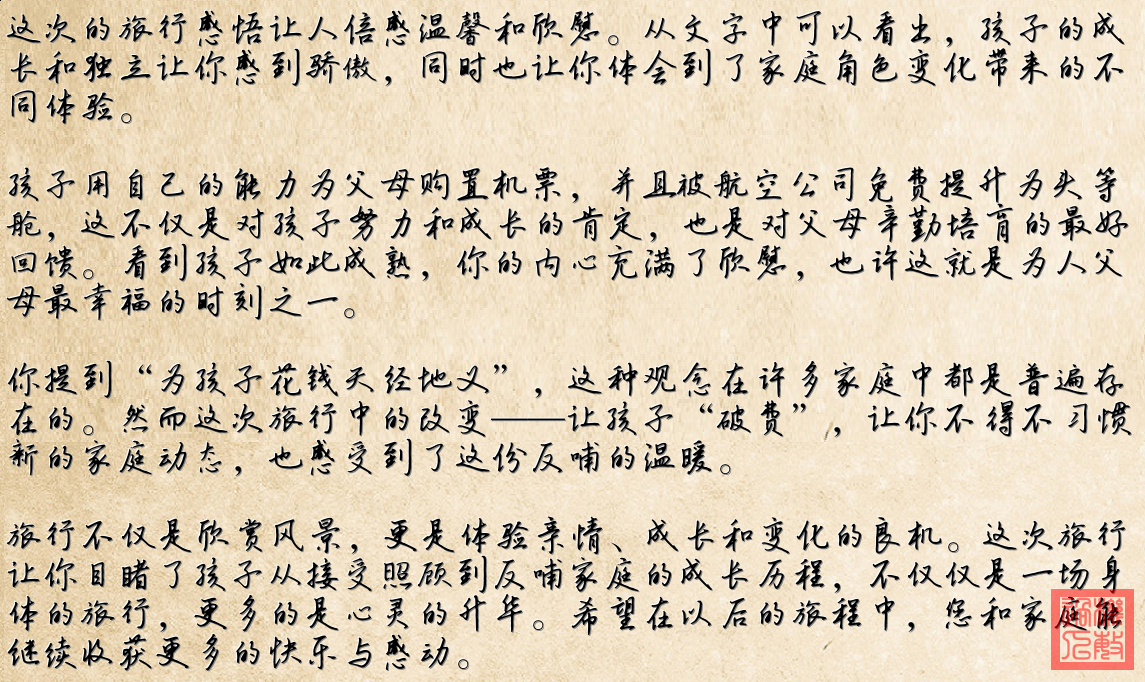 这次的旅行感悟让人倍感温馨和欣慰。从文字中可以看出，孩子的成
长和独立让你感到骄傲，同时也让你体会到了家庭角色变化带来的不
同体验。
孩子用自己的能力为父母购置机票，并且被航空公司免费提升为头等
舱，这不仅是对孩子努力和成长的肯定，也是对父母辛勤培育的最好
回馈。看到孩子如此成熟，你的内心充满了欣慰，也许这就是为人父
母最幸福的时刻之一。
你提到“为孩子花钱天经地义”，这种观念在许多家庭中都是普遍存
在的。然而这次旅行中的改变——让孩子“破费”，让你不得不习惯
新的家庭动态，也感受到了这份反哺的温暖。
旅行不仅是欣赏风景，更是体验亲情、成长和变化的良机。这次旅行
让你目睹了孩子从接受照顾到反哺家庭的成长历程，不仅仅是一场身
体的旅行，更多的是心灵的升华。希望在以后的旅程中，您和家庭能
继续收获更多的快乐与感动。